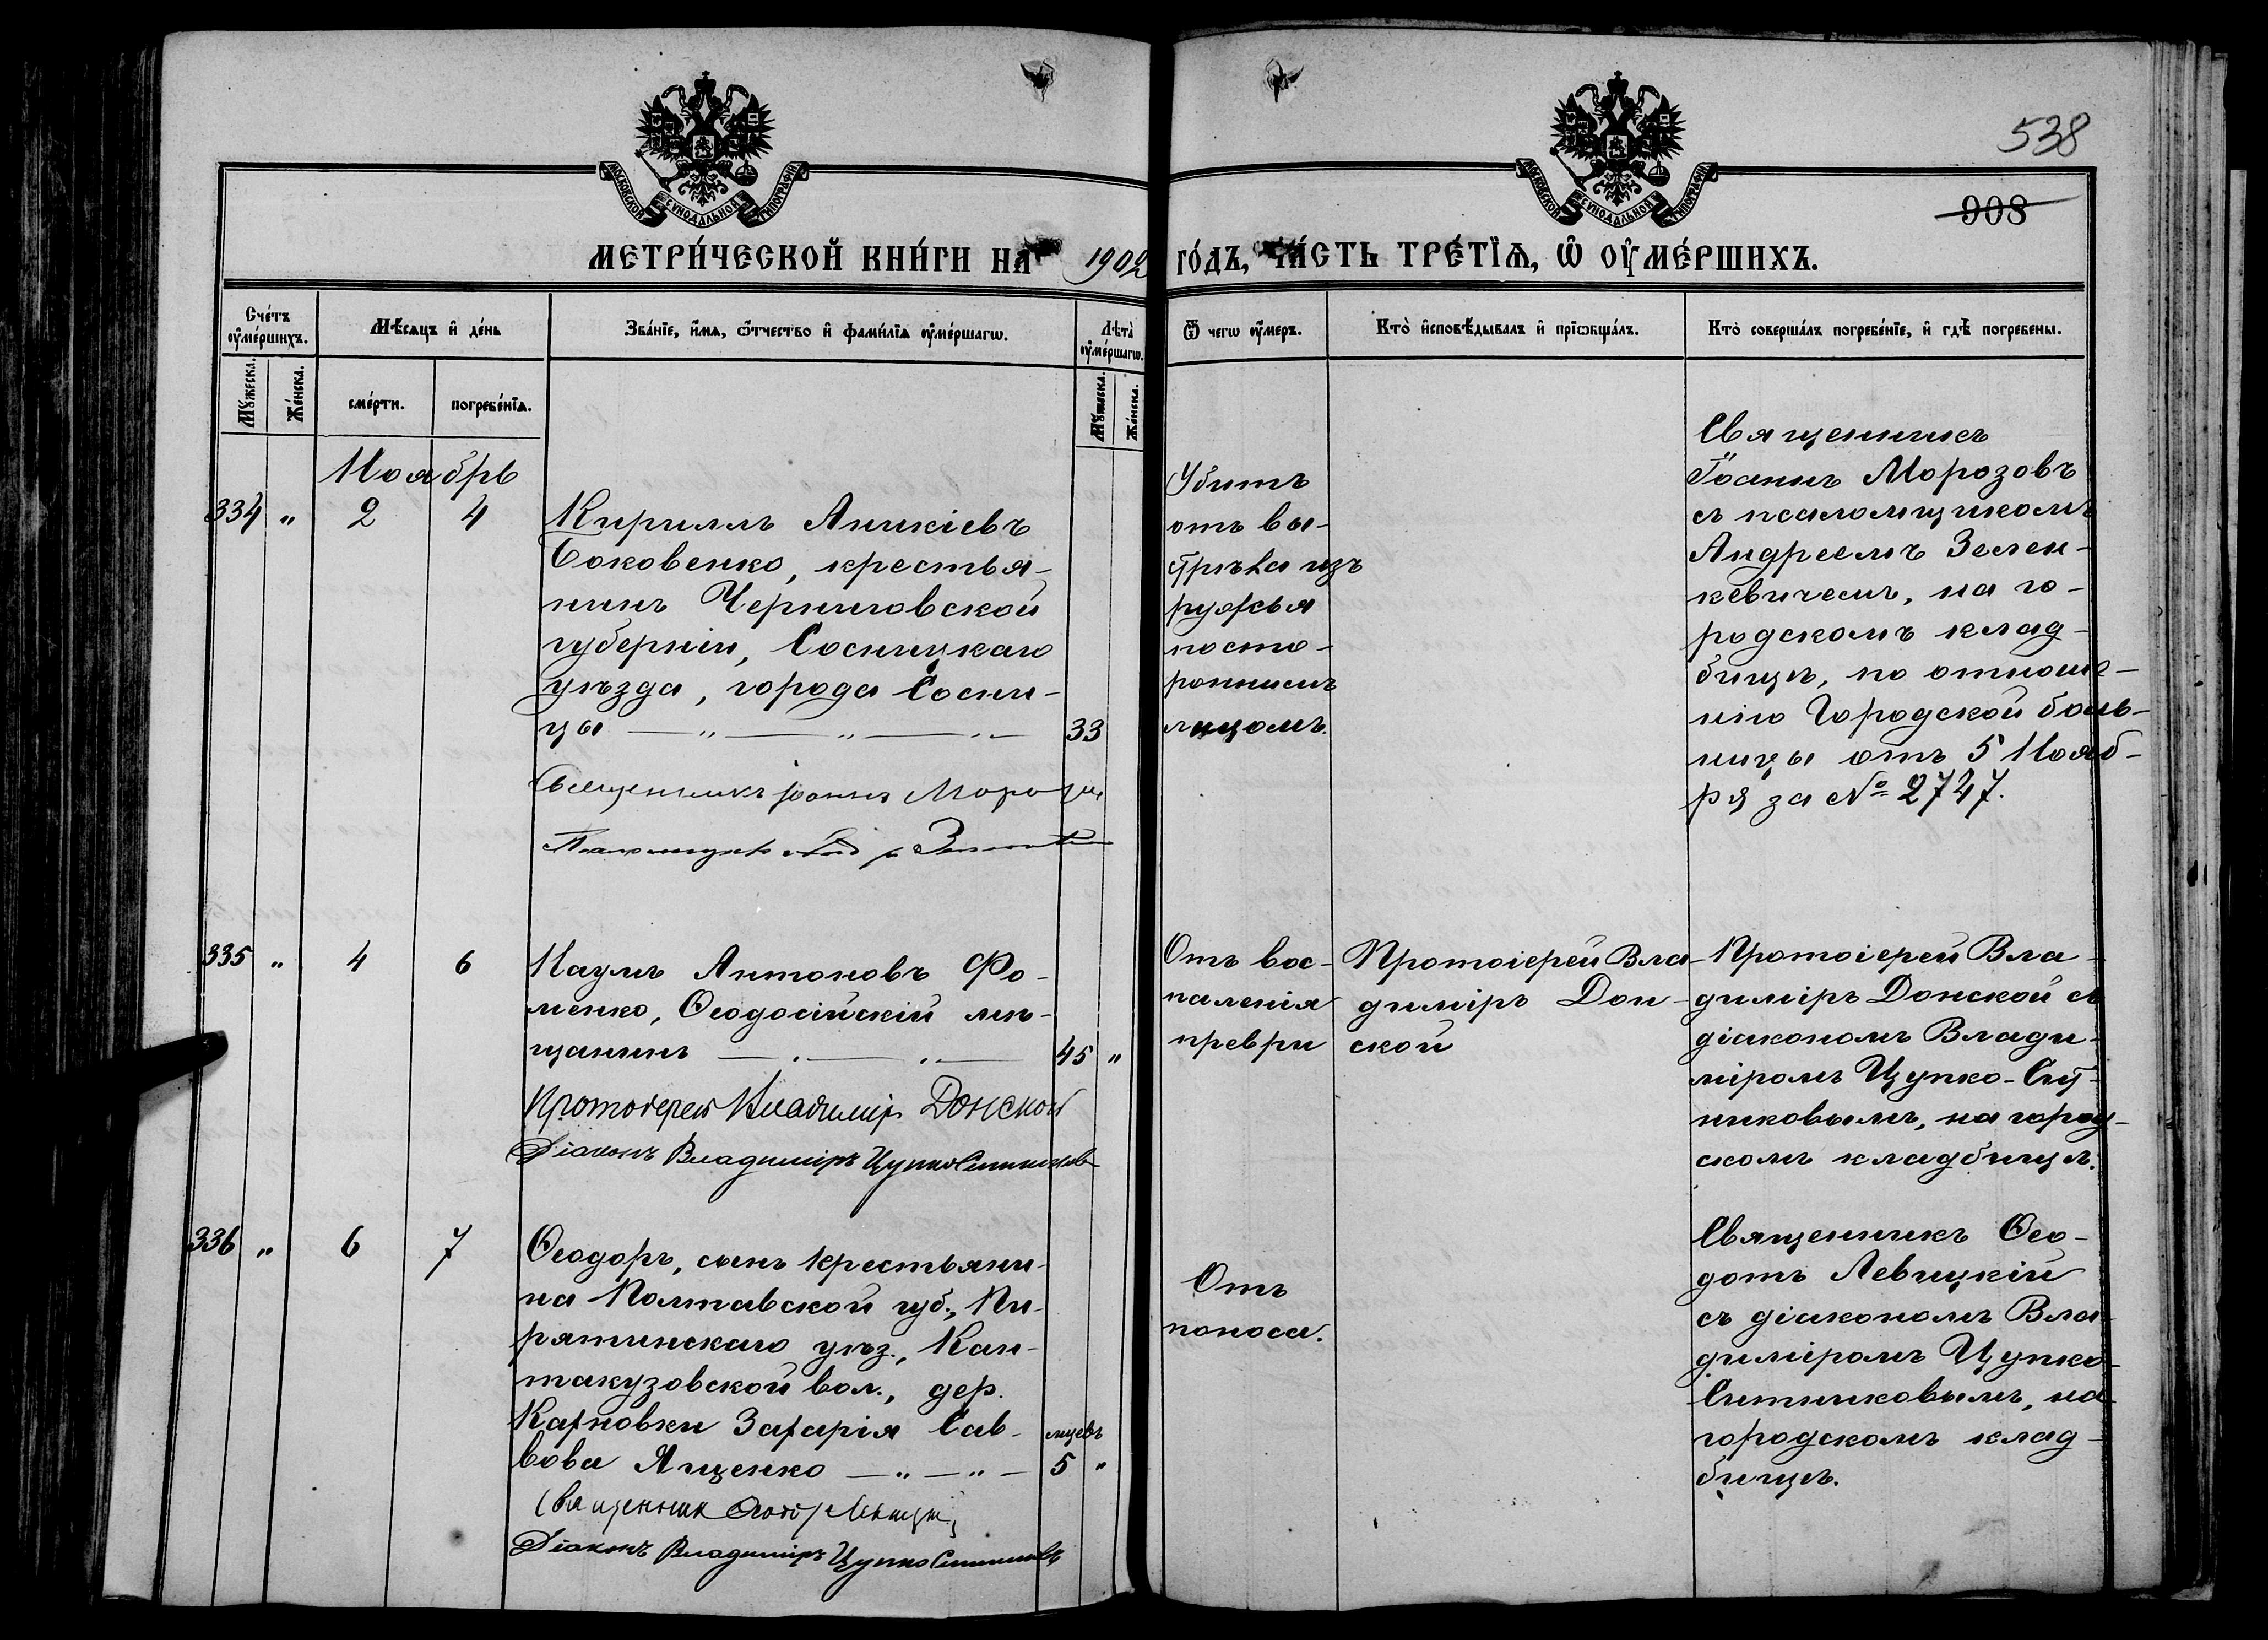 538
908
МОСКОВСКОЙ СѴНОДАЛЬНОЙ ТИПОГРАФІИ
МОСКОВСКОЙ СѴНОДАЛЬНОЙ ТИПОГРАФІИ
МЕТРИ́ЧЕСКОЙ КНИ́ГИ НА 1902 ГО́ДЪ, ЧА́СТЬ ТРЕ́ТЇѦ, Ѽ ОУ҆МЕ́РШИХЪ.
Сче́тъ оу҆ме́ршихъ.
Мꙋ́жеска.
Же́нска.
Мѣ́сѧцъ и҆ де́нь
сме́рти.
погребе́нїѧ.
Зва́нїе, и҆́мѧ, ѻ҆́тчество и҆ фами́лїѧ оу҆ме́ршагѡ.
Лѣ̀та оу҆ме́ршагѡ.
Мꙋ́жеска.
Же́нска.
Ѿ чегѡ̀ оу҆́меръ.
Кто̀ и҆сповѣ́дывалъ и҆ прїѡбща́лъ.
Кто̀ соверша́лъ погребе́нїе, и҆ гдѣ̀ погребены̀.
Ноябрь
334 " 2 4
Кириллъ Аникіевъ
Боковенко, крестья-
нинъ Черниговской
губерніи, Сосницкаго
уѣзда, города Сосни-
цы — " — " — " — 33
Священникъ Іоаннъ Морозовъ
Псаломщикъ
Убитъ
отъ вы-
стрѣла изъ
ружья
посто-
роннимъ
лицомъ.
Священникъ
Іоаннъ Морозовъ
съ псаломщикомъ
Андреемъ Зелен-
кевичемъ, на го-
родскомъ клад-
бищѣ, по отноше-
нію Городской боль-
ницы отъ 5 Нояб-
ря за № 2747.
335 " 4 6
Наумъ Антоновъ Фо-
менко, Ѳеодосійскій мѣ-
щанинъ — " — " — 45 "
Протоіерей Владиміръ Донской
Діаконъ Владиміръ Цупко Ситниковъ
Отъ вос-
паленія
плевры
Протоіерей Вла-
диміръ Дон-
ской
Протоіерей Вла-
диміръ Донской съ
діакономъ Влади-
міромъ Цупко-Сит-
никовымъ, на город-
скомъ кладбищѣ.
336 " 6 7
Ѳеодоръ, сынъ крестьяни-
на Полтавской губ., Пи-
рятинскаго уѣз., Кан-
такузовской вол., дер.
Каѳновки Захарія Сав-
вова Ященко — " — " — мцевъ 5 "
Священник Ѳеодотъ Левицкій
Діаконъ Владиміръ Цупко Ситниковъ
Отъ
поноса.
Священникъ Ѳео-
дотъ Левицкій
съ діакономъ Вла-
диміромъ Цупко-
Ситниковымъ, на
городскомъ клад-
бищѣ.